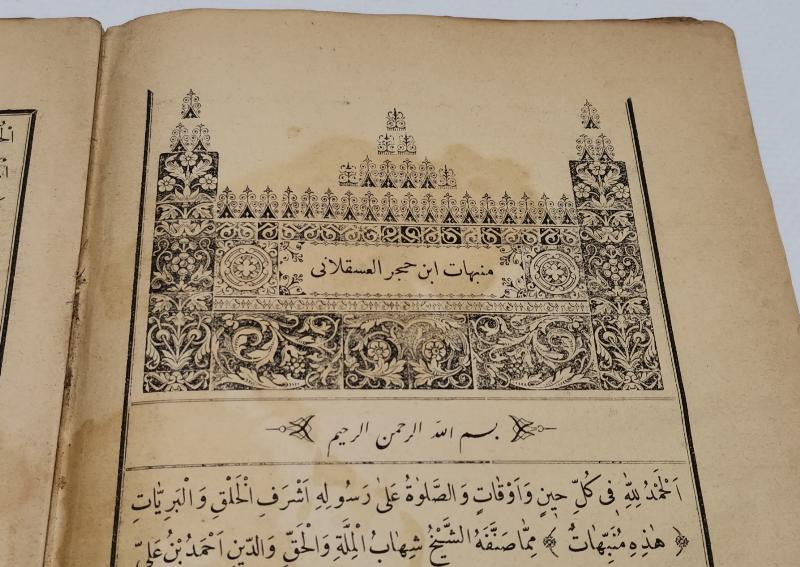 منبهات ابن حجر العسقلانى
بسم الله الرحمن الرحيم
اَلْحَمْدُ لِلّٰهِ فِى كُلِّ حِينٍ وَاَوْقَاتٍ وَالصَّلٰوةُ عَلٰى رَسُولِهِ اَشْرَفِ الْخَلْقِ وَالْبَرِيَّاتِ
﴿ هٰذِهِ مُنَبِّهَاتٌ ﴾ مِمَّا صَنَّفَهُ الشَّيْخُ شِهَابُ الْمِلَّةِ وَالْحَقِّ وَالدِّينِ اَحْمَدُ بْنُ عَلِىِّ